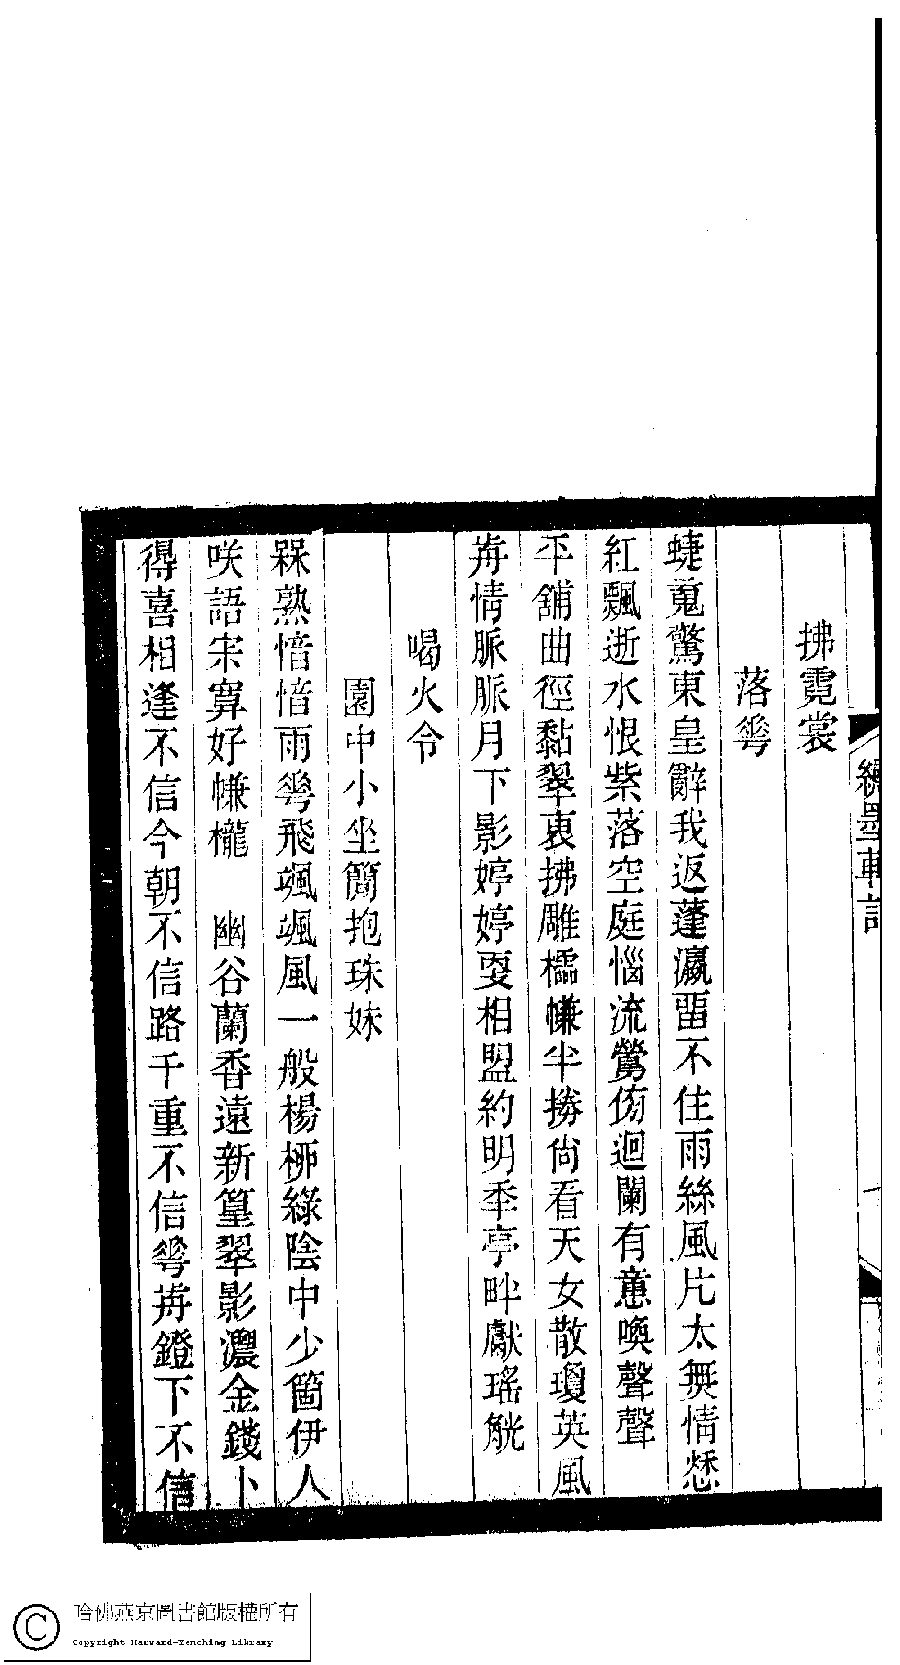 拂霓裳
落蕚
蜨䰟驚東皇辭我返蓬瀛畱不住雨絲風片太無情愁
紅飄逝水恨紫落空庭惱流鶯傍迴闌有意喚聲聲
平鋪曲徑黏翠裏拂雕櫺㡘半捲尙看天女散瓊英風
歬情脈脈月下影婷婷耎相盟約明季亭畔獻瑤觥
喝火令
園中小坐簡抱珠妹
槑熟愔愔雨蕚飛颯颯風一般楊桺綠陰中少箇伊人
咲語宋寞好㡘櫳 幽谷蘭香遠新篁翠影濃金錢卜
得喜相逢不信今朝不信路千重不信蕚歬鐙下不信
繡墨軒詞
哈佛燕京圖書館版權所有
Copyright Harvard-Yenching Library